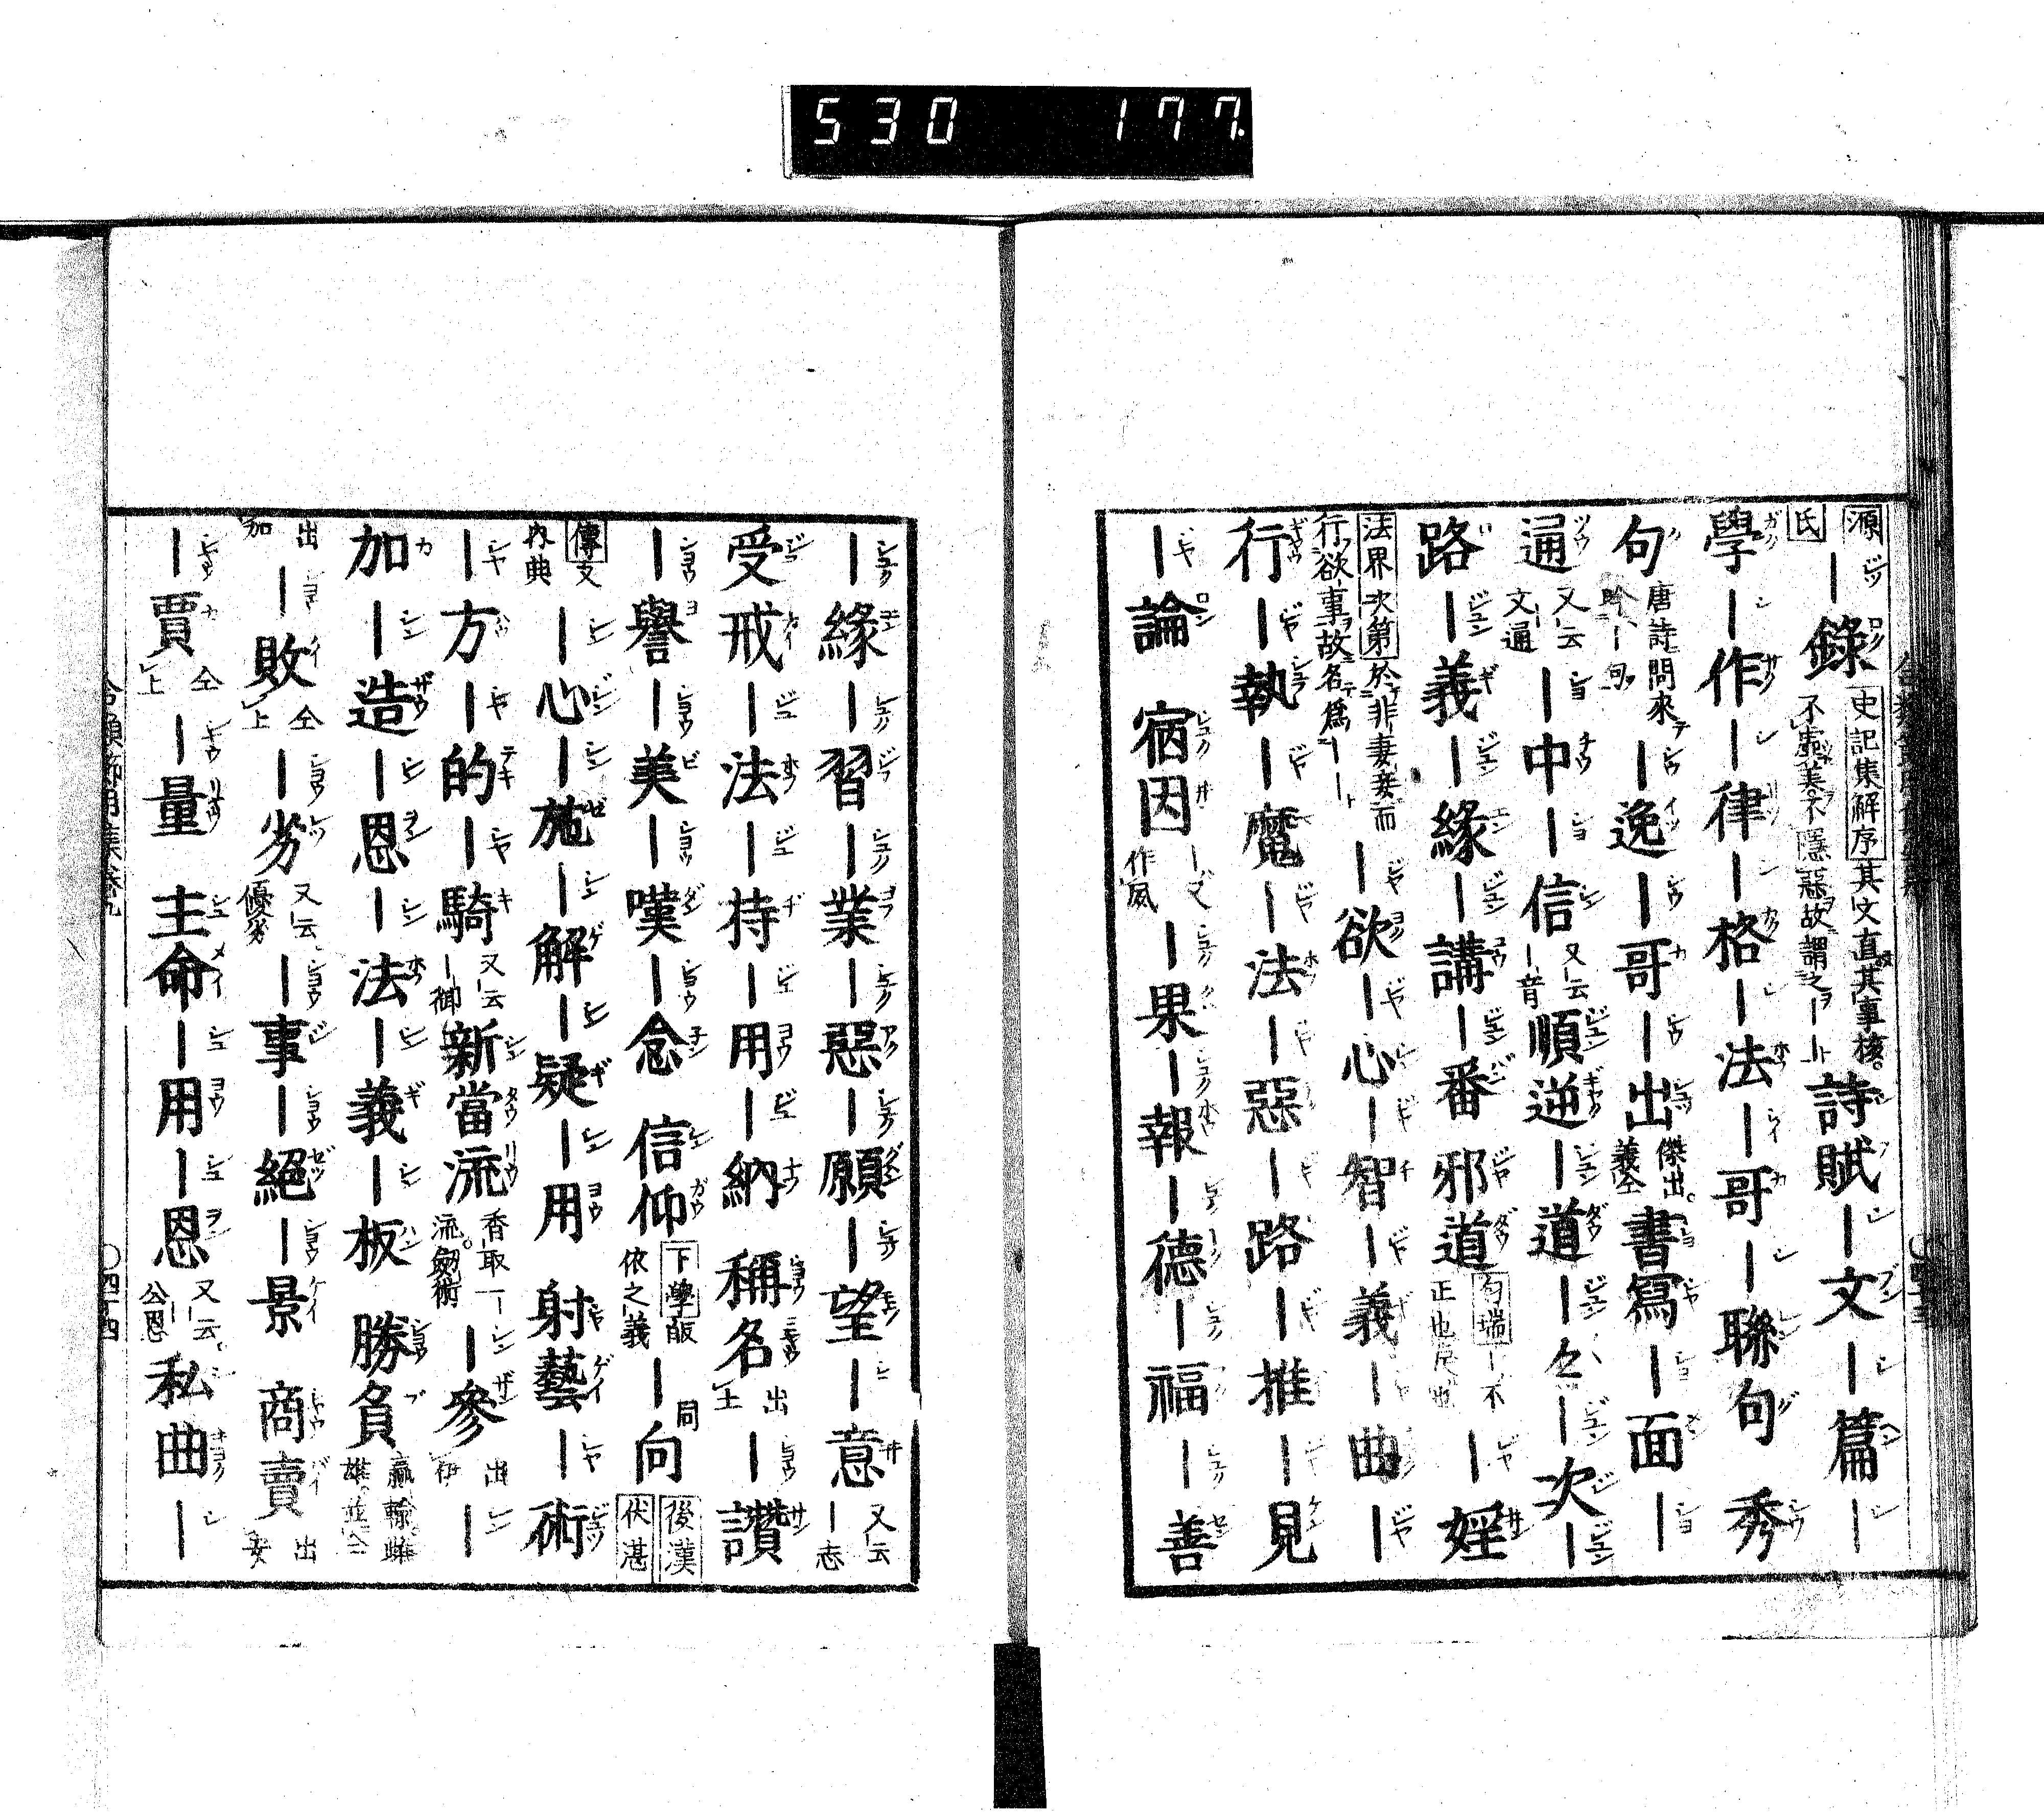 530 177
源氏
―錄 史記集解序其文直其事核。不虚美不隱惡故謂之――ト 詩賦―文―篇―
學―作―律―格―法―哥―聯句 秀
句 唐詩問來吟―句 ―逸―哥―出 傑出。義仝 書寫―面―
通 又云文通 ―中―信 又云―音 順逆―道―々―次―
路―義―緣―講―番 邪道 ―不正也 ―婬
法界次第於非妻妾而行欲事故名爲――ト ―欲―心―智―義―曲―
行―執―魔―法―惡―路―推―見
―論 宿因 作夙 ―果―報―德―福―善
―緣―習―業―惡―願―望―意 又云―志
受戒―法―持―用―納 稱名 出上 ―讃
―譽―美―嘆―念 信仰 下學 依之義 ―向 同 後漢伏湛
傳文内典 ―心―施―解―疑―用 射藝―術
―方―的―騎 又云―御 新當流 香取―流。劔術 ―參 出伊 ―
加―造―恩―法―義―板 勝負 贏輸雌雄。並仝
出加 ―敗 仝上 ―劣 又云優劣 ―事―絕―景 商賣 出
―賈 仝上 ―量 主命―用―恩 又云。公恩 私曲―
四十四